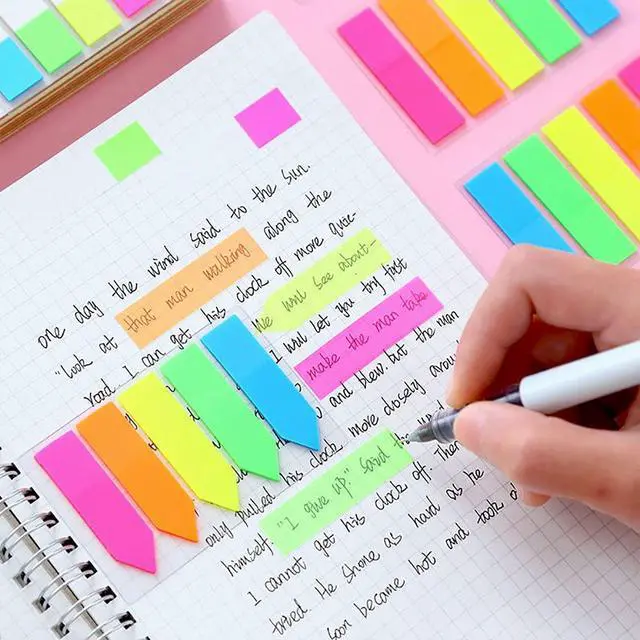 one day the wind said to the sun.
"Look at that man walking along the
road. I can get his clock off more quic-
We will see about-
I will let you try first
make the man take
and blew. but the man
his clock more closely arou
only pulled
himself. "I give up." said the
I cannot get his clock off. Then
tried. He Shone as hard as he
Soon became hot and took